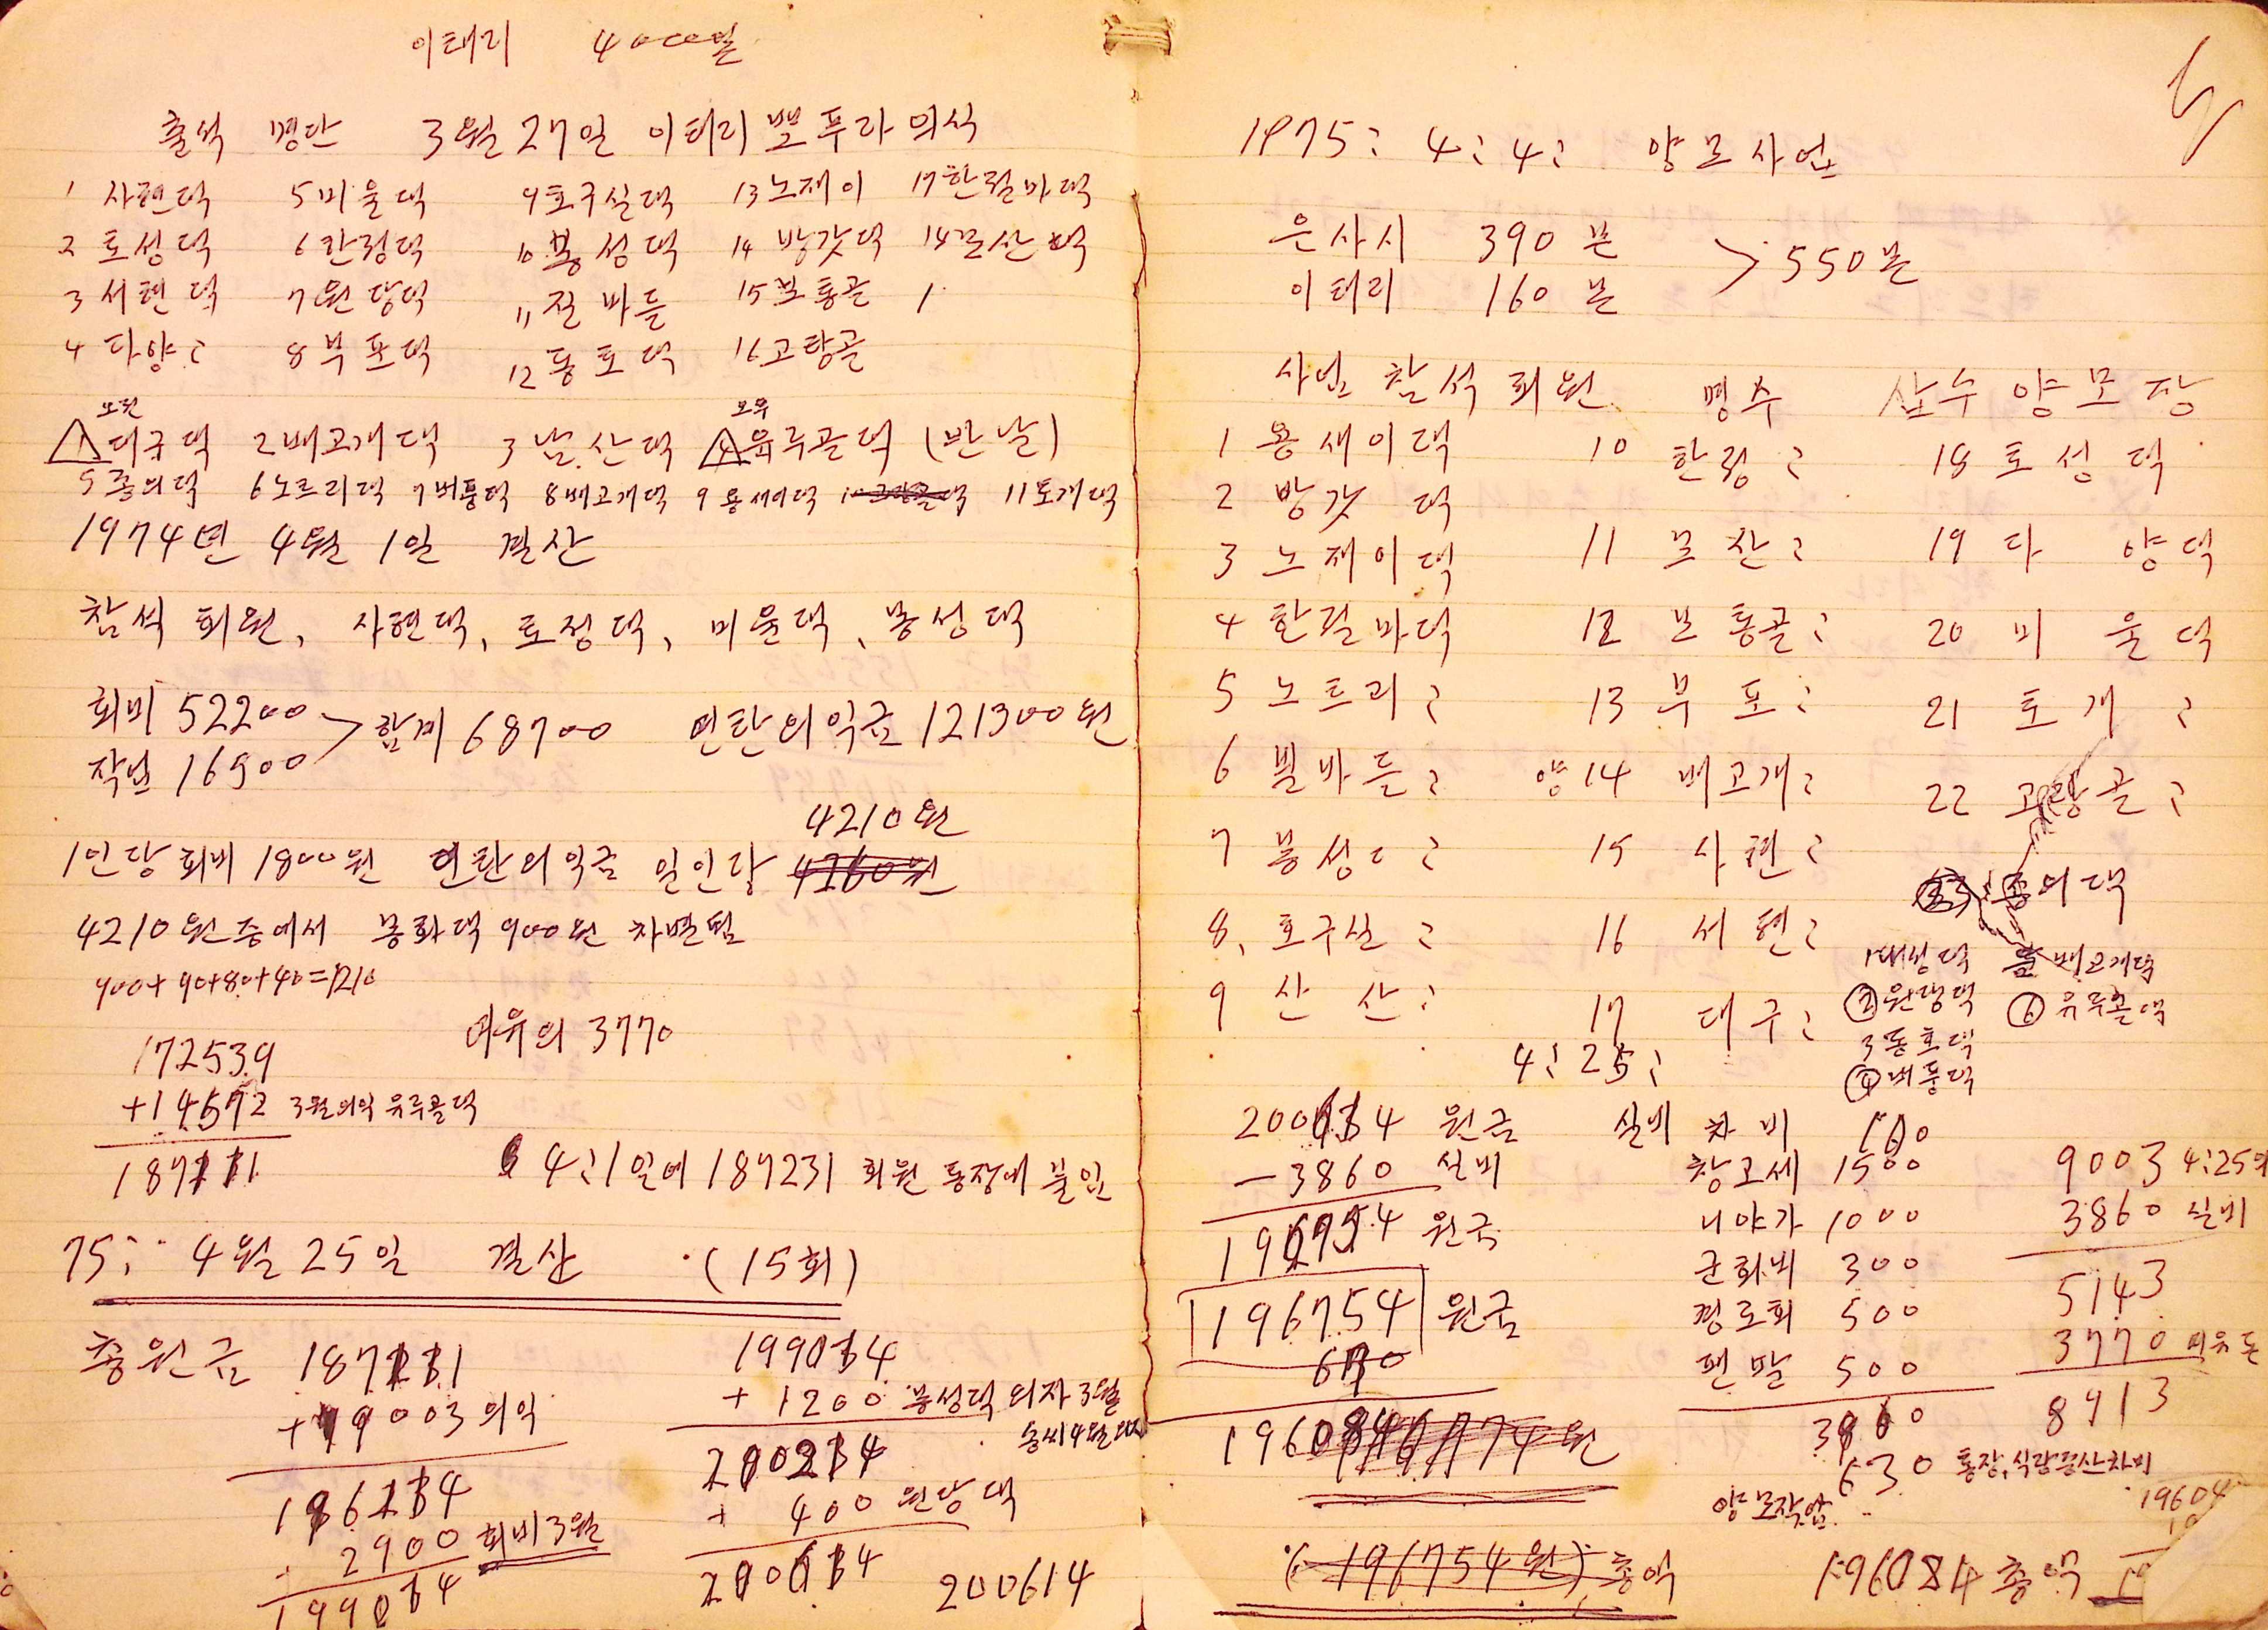 이태리 4000본
출석 명단 3월 27일 이터리 뽀푸라 의식
1 사현댁 5 미울댁 9 호구실댁 13 노재이 17 한림마댁
2 토성댁 6 한림댁 10 봉성댁 14 방갓댁 14 모산댁
3 서현댁 7 원당댁 11 질바들 15 보통골 /
4 다양 〃 8 부포댁 12 동호댁 16 고탕골
1 대구댁 2 배고개댁 3 남산댁 4 유루골댁 (반날)
5 종의댁 6 노트리댁 7 버풍댁 8 배고개댁 9 용새이댁 10 11 토개댁
1974년 4월 1일 결산
참석 회원, 사현댁, 토정댁, 미울댁, 봉성댁
회비 52200
작업 16500 > 합계 68700 연탄의익금 121300원
4210원
1인당 회비 1800원 연탄의익금 일인당 4260원
4210원 중에서 봉화댁 900원 차별됨
900+90+80+40=1210
여유의 3770
172539
+14692 3월의익 유루골댁
187231
4:1일에 187231 회원 통장에 불입
75: 4월 25일 결산 (15회)
총원금 187231
+9003 의익
196234
2900 회비 3월
199134
199134
+ 1200 봉성덕 의자 3월
송씨 4월
200214
+ 400 원당댁
200614
200614
1975: 4: 4: 양모사업
은사시 390본
이터리 160본 > 550본
사업 참석 회원 명수 삽수 양모장
1 용새이댁 10 한림 〃 18 토성댁
2 방갓댁
3 노재이댁 11 모산 〃 19 다양댁
4 한림마댁 12 보통골 〃 20 미울댁
5 노트리 〃 13 부포 〃 21 토개 〃
6 벌바들 〃 양 14 배고개 〃 22 고랑골 〃
7 봉성 〃 15 사현 〃
23 종의댁
8. 호구실 〃 16 서현 〃
1 대성댁 배고개댁
9 산산 〃 17 대구 〃
② 원당댁 ⑥ 유루골댁
3 동호댁
④ 버풍댁
4: 25:
200614 원금
-3860 실비
196754 원국
196754 원금
670
196084
(196754원) 총액
실비 차비
창고세 1500
니야가 1000
군화비 300
경로회 500
팬말 500
3860
630 통장, 식량등산차비
양모작업
196084 총액
9003 4:25의
3860 실비
5143
3770 여유돈
8913
19604